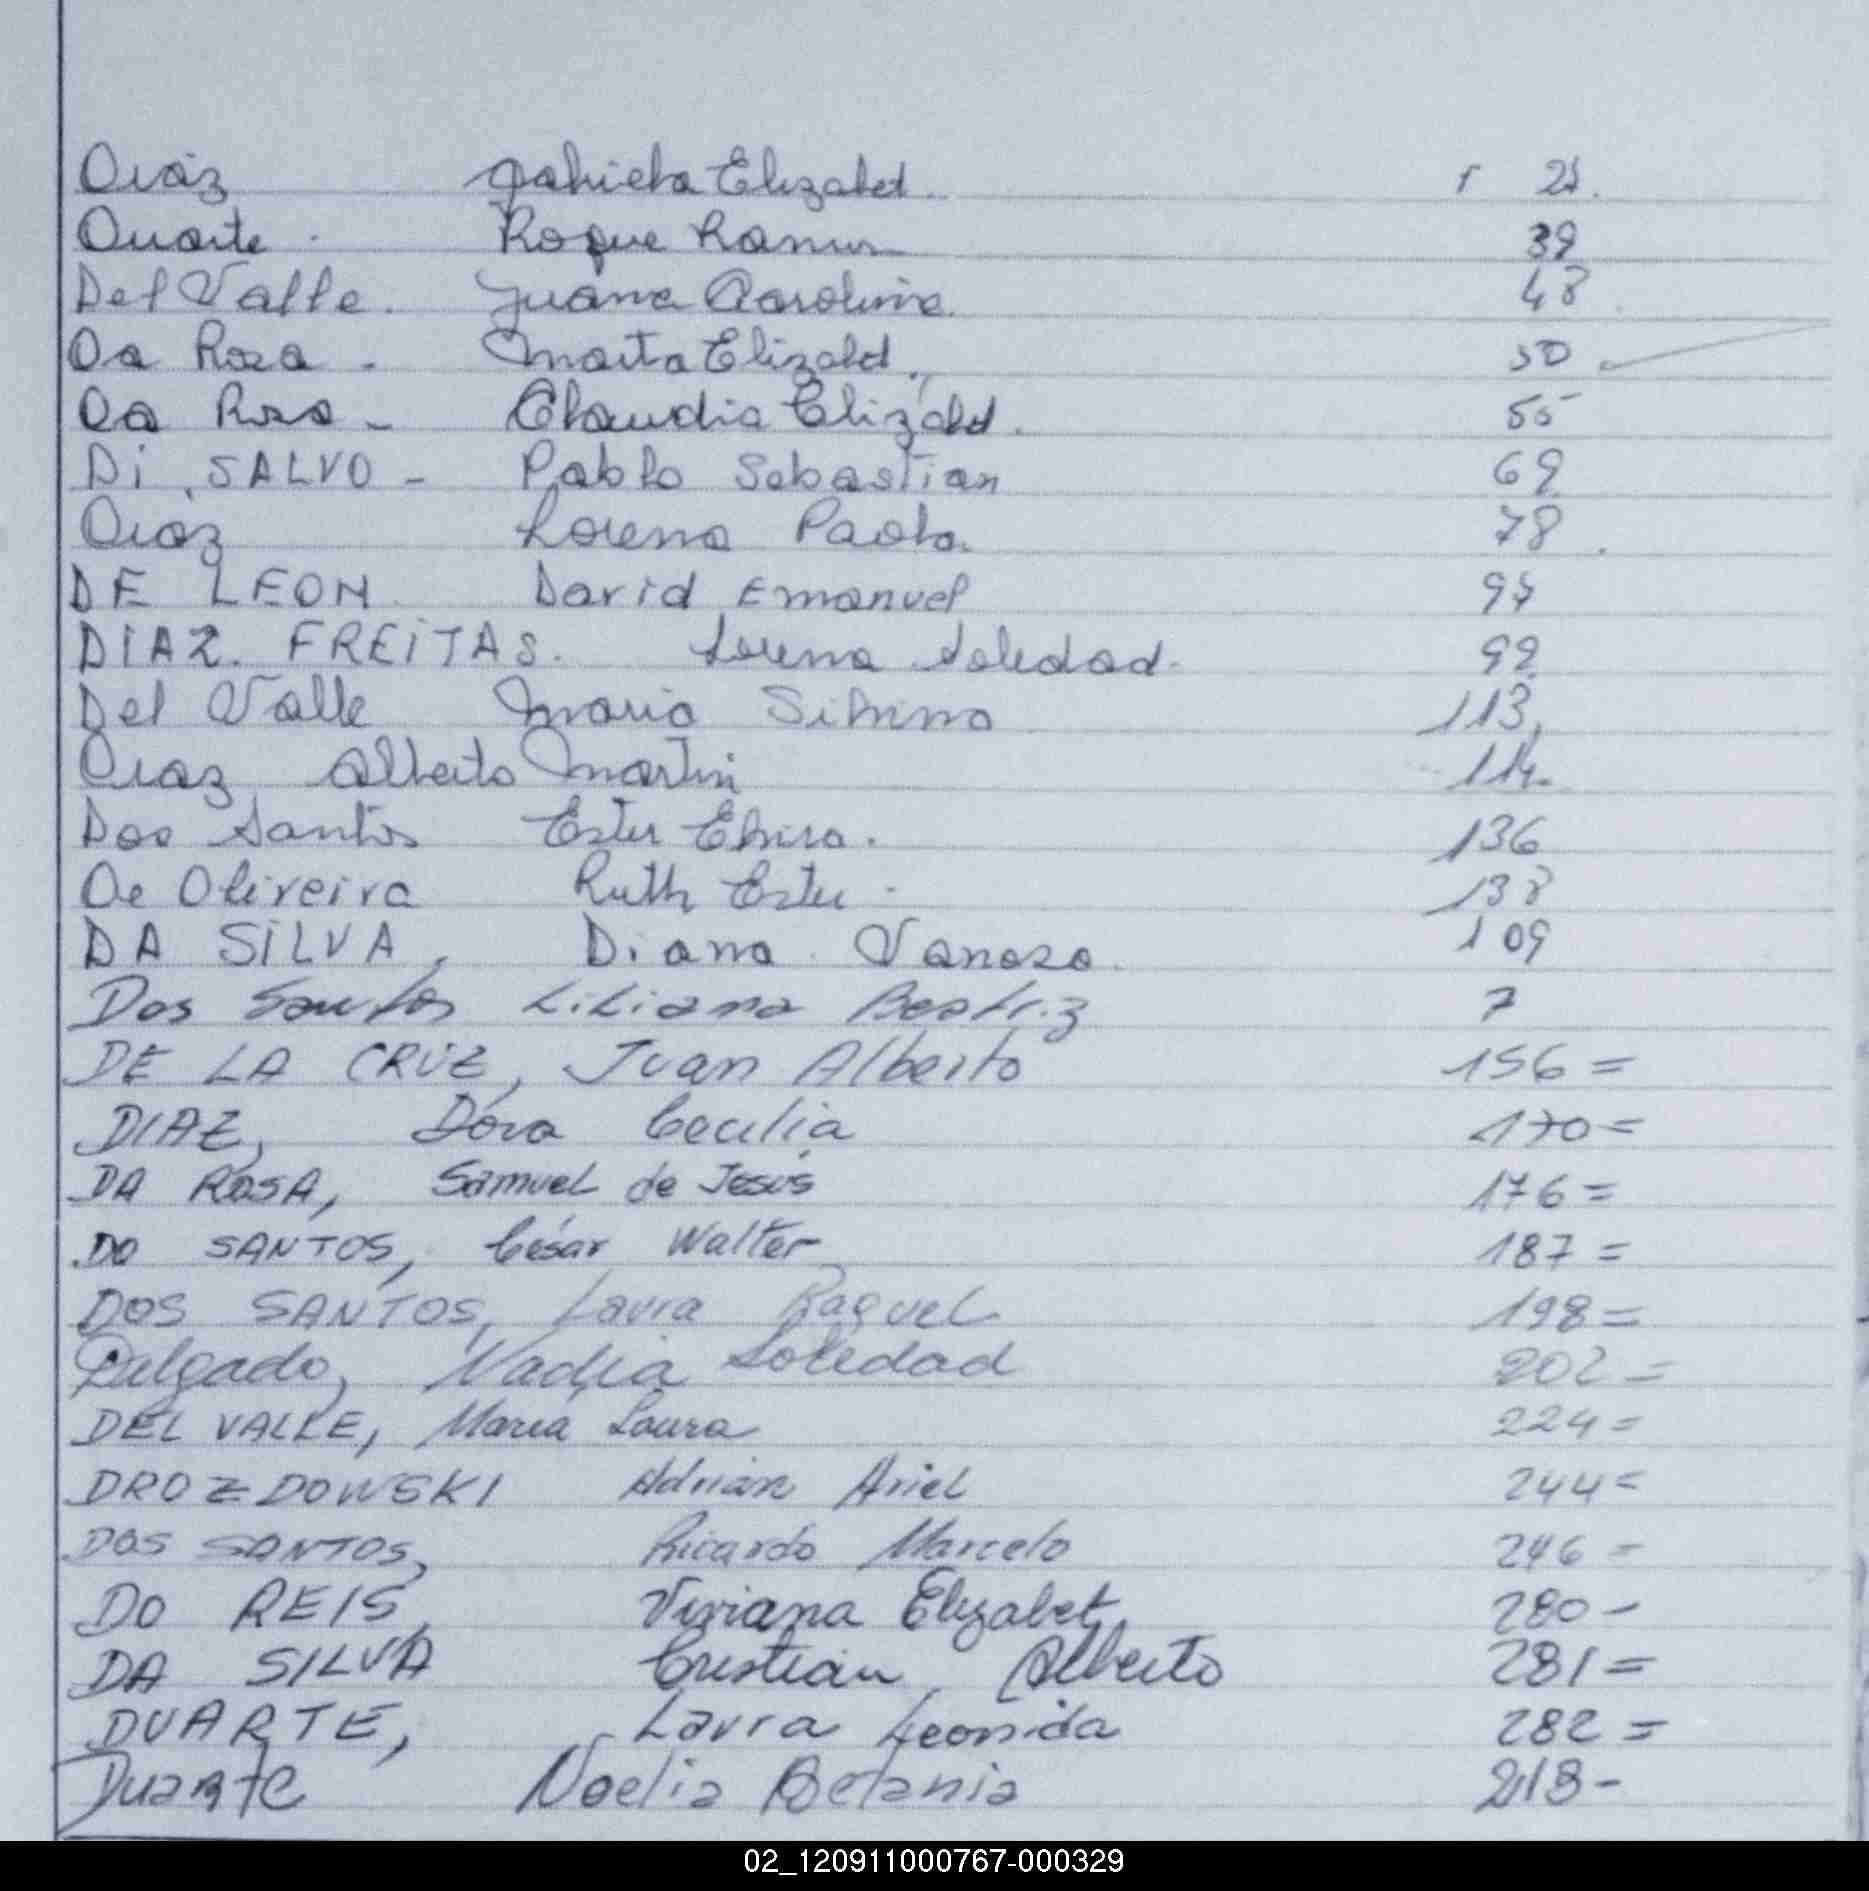 Diaz Gabriela Elizabet. r 21.
Duarte. Roque Ramon 39
Del Valle. Juana Carolina. 48
Da Rosa - Marta Elizabet. 50
Da Rosa - Claudia Elizabet. 55
Di SALVO - Pablo Sebastian 69
Diaz Lorena Paola. 78.
DE LEON. David Emanuel
DIAZ. FREITAS. Lorena Soledad. 99
Del Valle Maria Silvina 113,
Diaz Alberto Martin 114.
Dos Santos Ester Elvira. 136
De Oliveira Ruth Ester. 138
DA SILVA, Diana Vanesa. 109
Dos Santos Liliana Beatriz 7
DE LA CRUZ, Juan Alberto 156 =
DIAZ, Dora Cecilia 170 =
DA ROSA, Samuel de Jesús 176 =
DO SANTOS, César Walter 187 =
DOS SANTOS, Laura Raquel 198 =
Delgado, Nadia Soledad 202 =
DEL VALLE, Maria Laura 224 =
DROZDOWSKI Adrián Ariel 244 =
DOS SANTOS, Ricardo Marcelo 246 -
DO REIS, Viviana Elizabet 280 -
DA SILVA Cristian Alberto 281 =
DUARTE, Laura Leonida 282 =
Duarte Noelia Betania 218 -
02_120911000767-000329